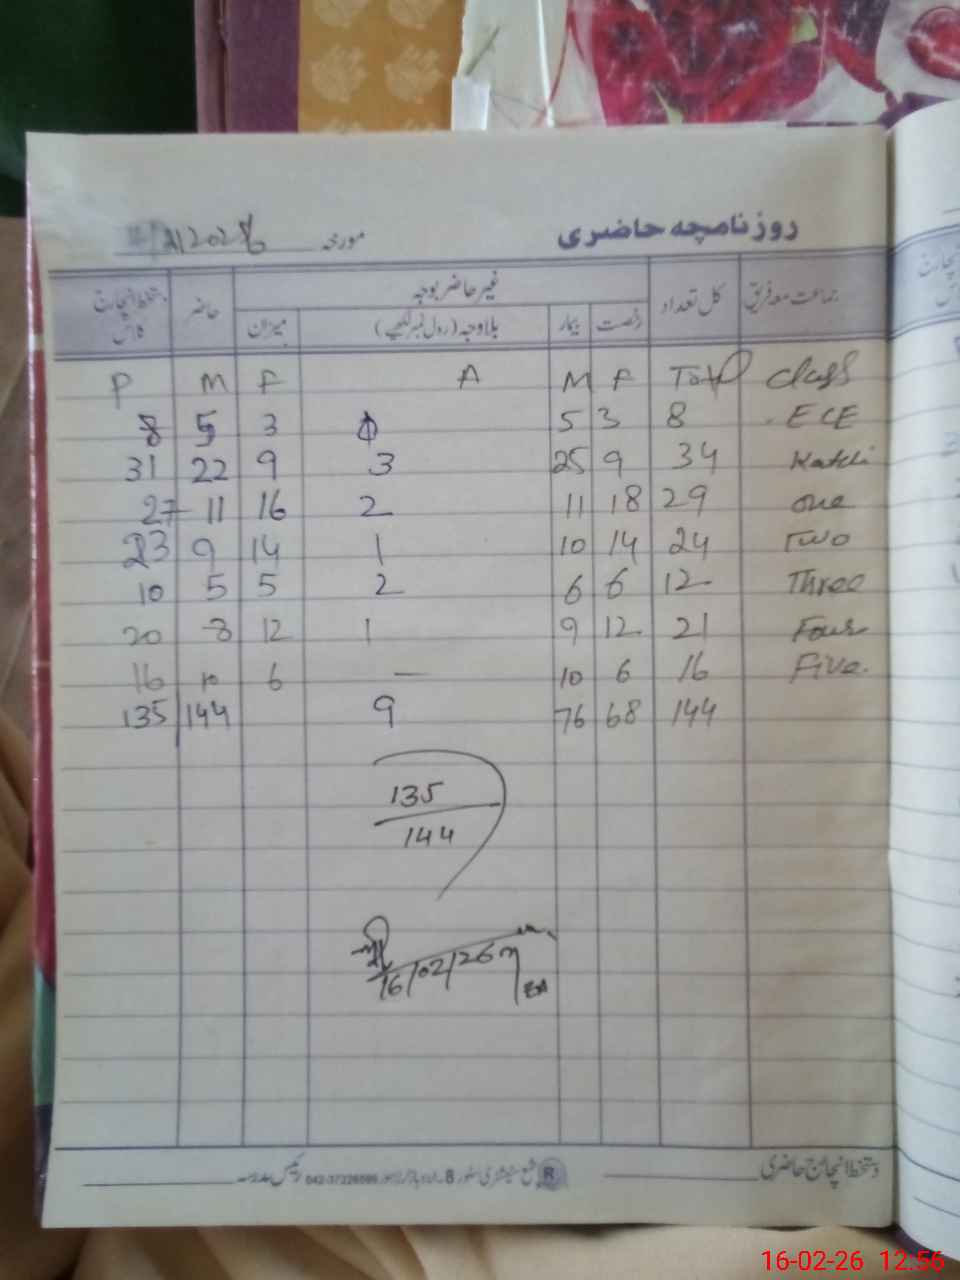 روزنامچہ حاضری مورخہ
جماعت معہ فریق کل تعداد غیر حاضر بوجہ حاضر دستخط انچارج کلاس
رخصت بیمار بلاوجہ (رول نمبر لکھیے) میزان
P M F A M F Total Class
8 5 3 5 3 8 ECE
31 22 9 3 25 9 34 Katchi
27 11 16 2 11 18 29 one
23 9 14 1 10 14 24 Two
10 5 5 2 6 6 12 Three
20 8 12 1 9 12 21 Four
16 10 6 — 10 6 16 Five.
135 144 9 76 68 144
135
144
16/02/26
دستخط انچارج حاضری
R شمع سٹیشنری سٹور 8 اردو بازار لاہور 042-37226096 رئیس مدرسہ
16-02-26 12:56